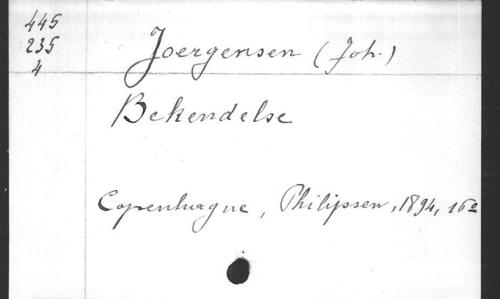 445
235
4
Joergensen (Joh.)
Bekendelse
Copenhague, Philipsen, 1894, 16º